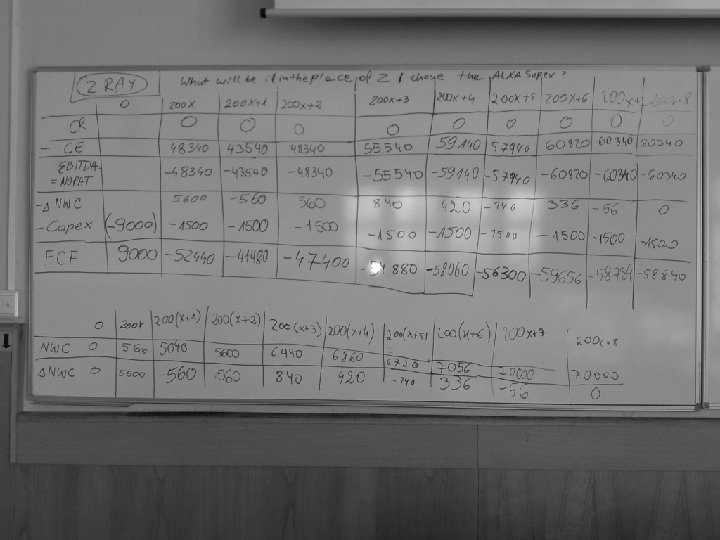 Z RAY What will be if in the place of Z I chose the ALXA Super?
0 200X 200X+1 200X+2 200X+3 200X+4 200X+5 200X+6 200X+7 200X+8
CR 0 0 0 0 0 0 0 0 0
- CE 48340 43540 48340 55540 59140 57940 60820 60340 60340
EBITDA
= NOPAT -48340 -43540 -48340 -55540 -59140 -57940 -60820 -60340 -60340
-Δ NWC 5600 -560 560 840 420 -140 336 -56 0
- Capex (-9000) -1500 -1500 -1500 -1500 -1500 -1500 -1500 -1500 -1500
FCF 9000 -52440 -41480 -47400 880 -58060 -56300 -59656 -58784 -58840
0 200X 200(X+1) 200(X+2) 200(X+3) 200(X+4) 200(X+5) 200(X+6) 200X+7 200X+8
NWC 0 5600 5040 5600 6440 6860 6720 7056 7000 7000
Δ NWC 0 5600 560 560 840 420 -140 336 -56 0